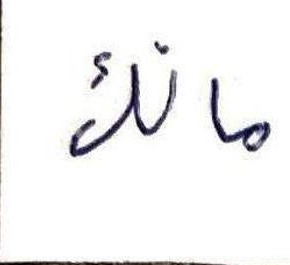 مالك